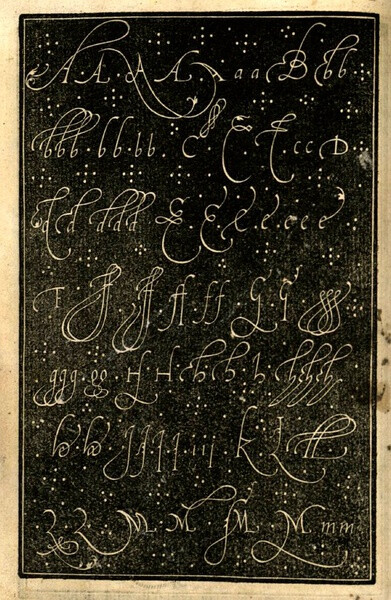 A · A · A · A · a a · B · b b
b b b · b b · b b · C · C · C · c c · D
d d · d d d d · E · E · E · e · e e e
F · F · F · ff · f f · G · G · g g g
g g g · g g · H · H · h · h · h · h h h h
h · h · J J J J · i i j · k · L ll
L · L · M · M · M · M m m